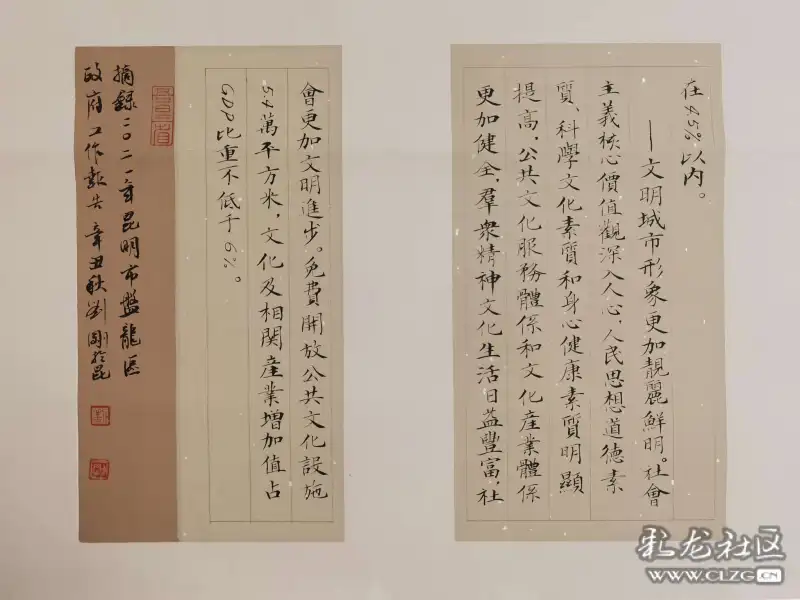 在45%以内。
——文明城市形象更加靚麗鮮明。社會
主義核心價值觀深入人心，人民思想道德素
質、科學文化素質和身心健康素質明顯
提高，公共文化服務體係和文化產業體係
更加健全，羣衆精神文化生活日益豐富，社
會更加文明進步。免費開放公共文化設施
54萬平方米，文化及相関產業增加值占
GDP比重不低于6%。
摘録二〇二一年昆明市盤龍區
政府工作報告 辛丑秋 劉剛於昆
彩龙社区
WWW.CLZG.CN